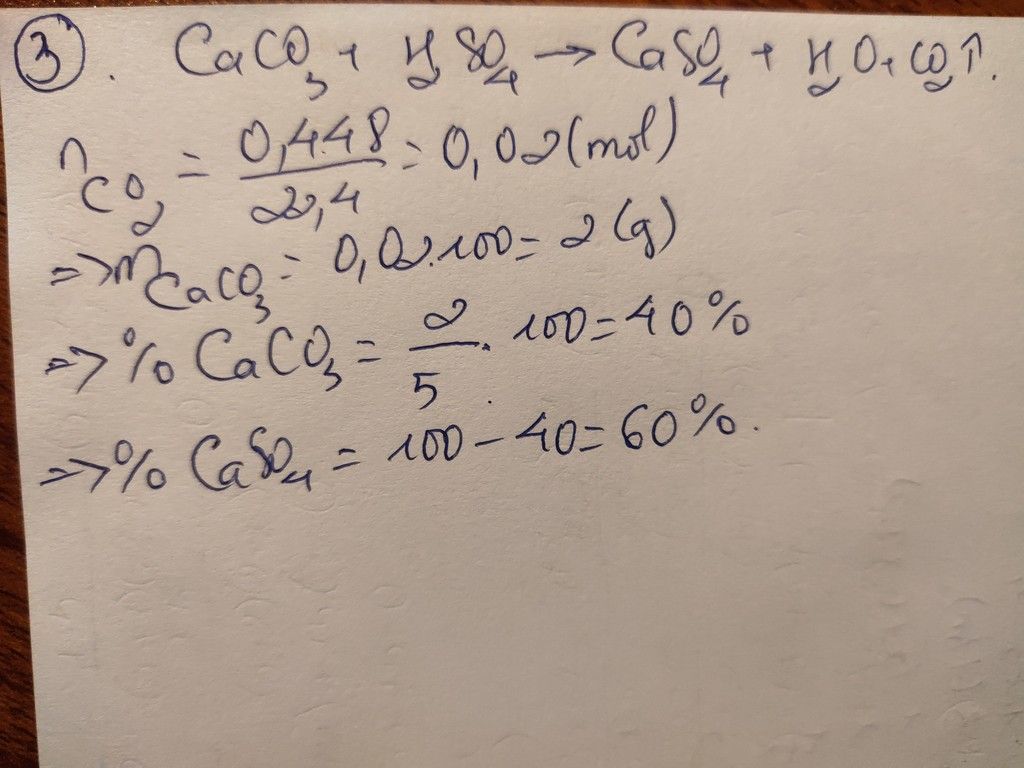 ③. CaCO₃ + H₂SO₄ → CaSO₄ + H₂O + CO₂↑.
n CO₂ = 0,448 / 22,4 = 0,02 (mol)
=> m CaCO₃ = 0,02.100 = 2 (g)
=> % CaCO₃ = 2 / 5 . 100 = 40%
=> % CaSO₄ = 100 - 40 = 60%.